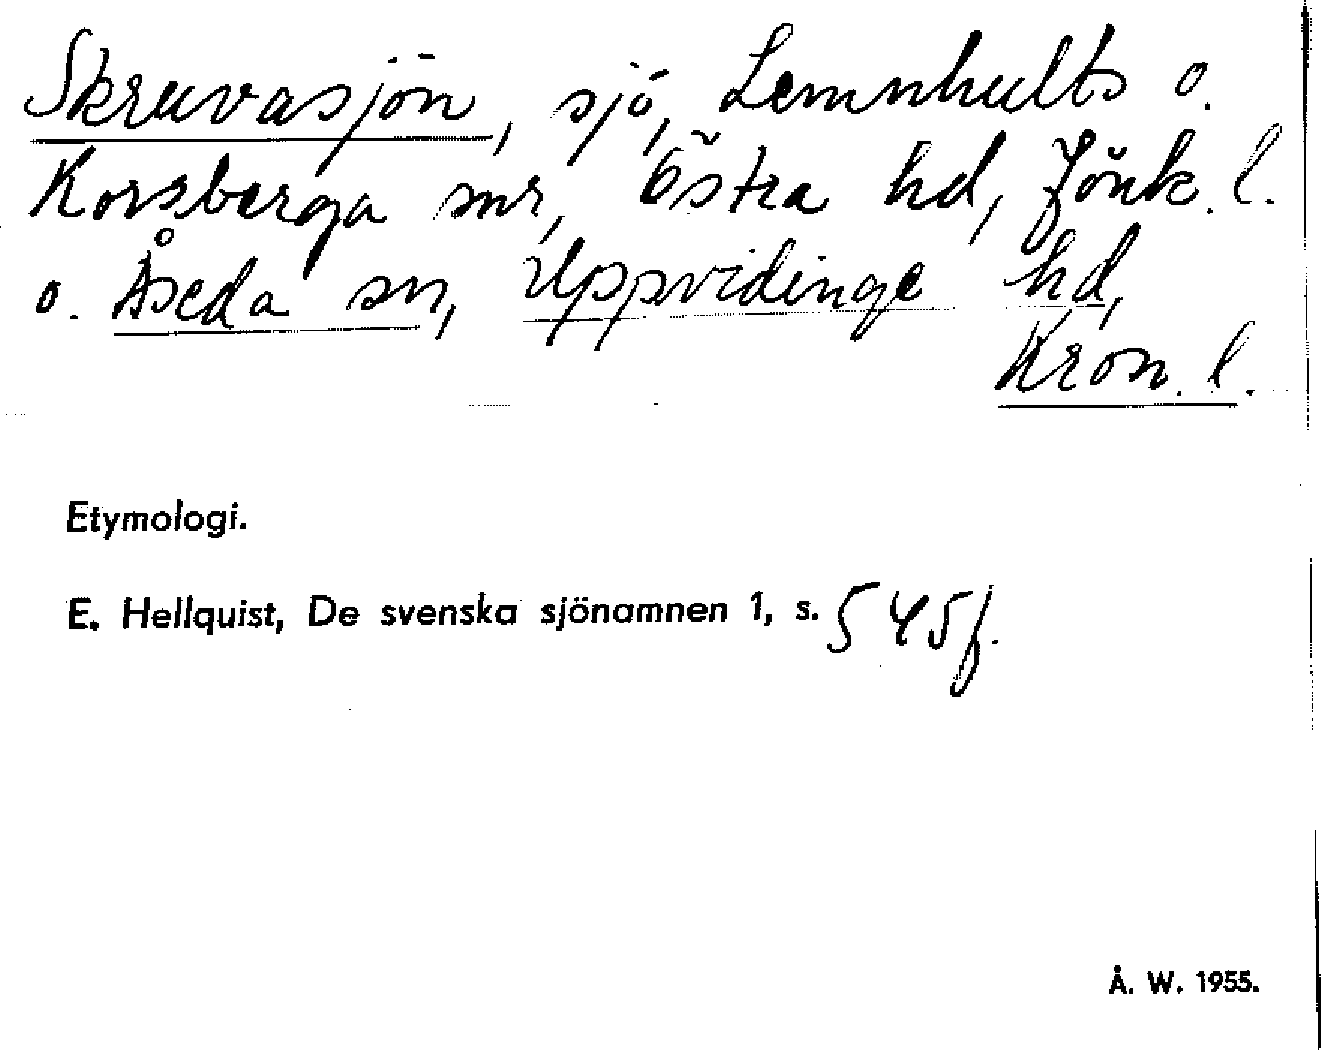 Skruvasjön, sjö, Lemnhults o.
Korsberga snr, Östra hd, Jönk. l.
o. Åseda sn, Uppvidinge hd,
Kron. l.
Etymologi.
E. Hellquist, De svenska sjönamnen 1, s. 545f.
Å. W. 1955.